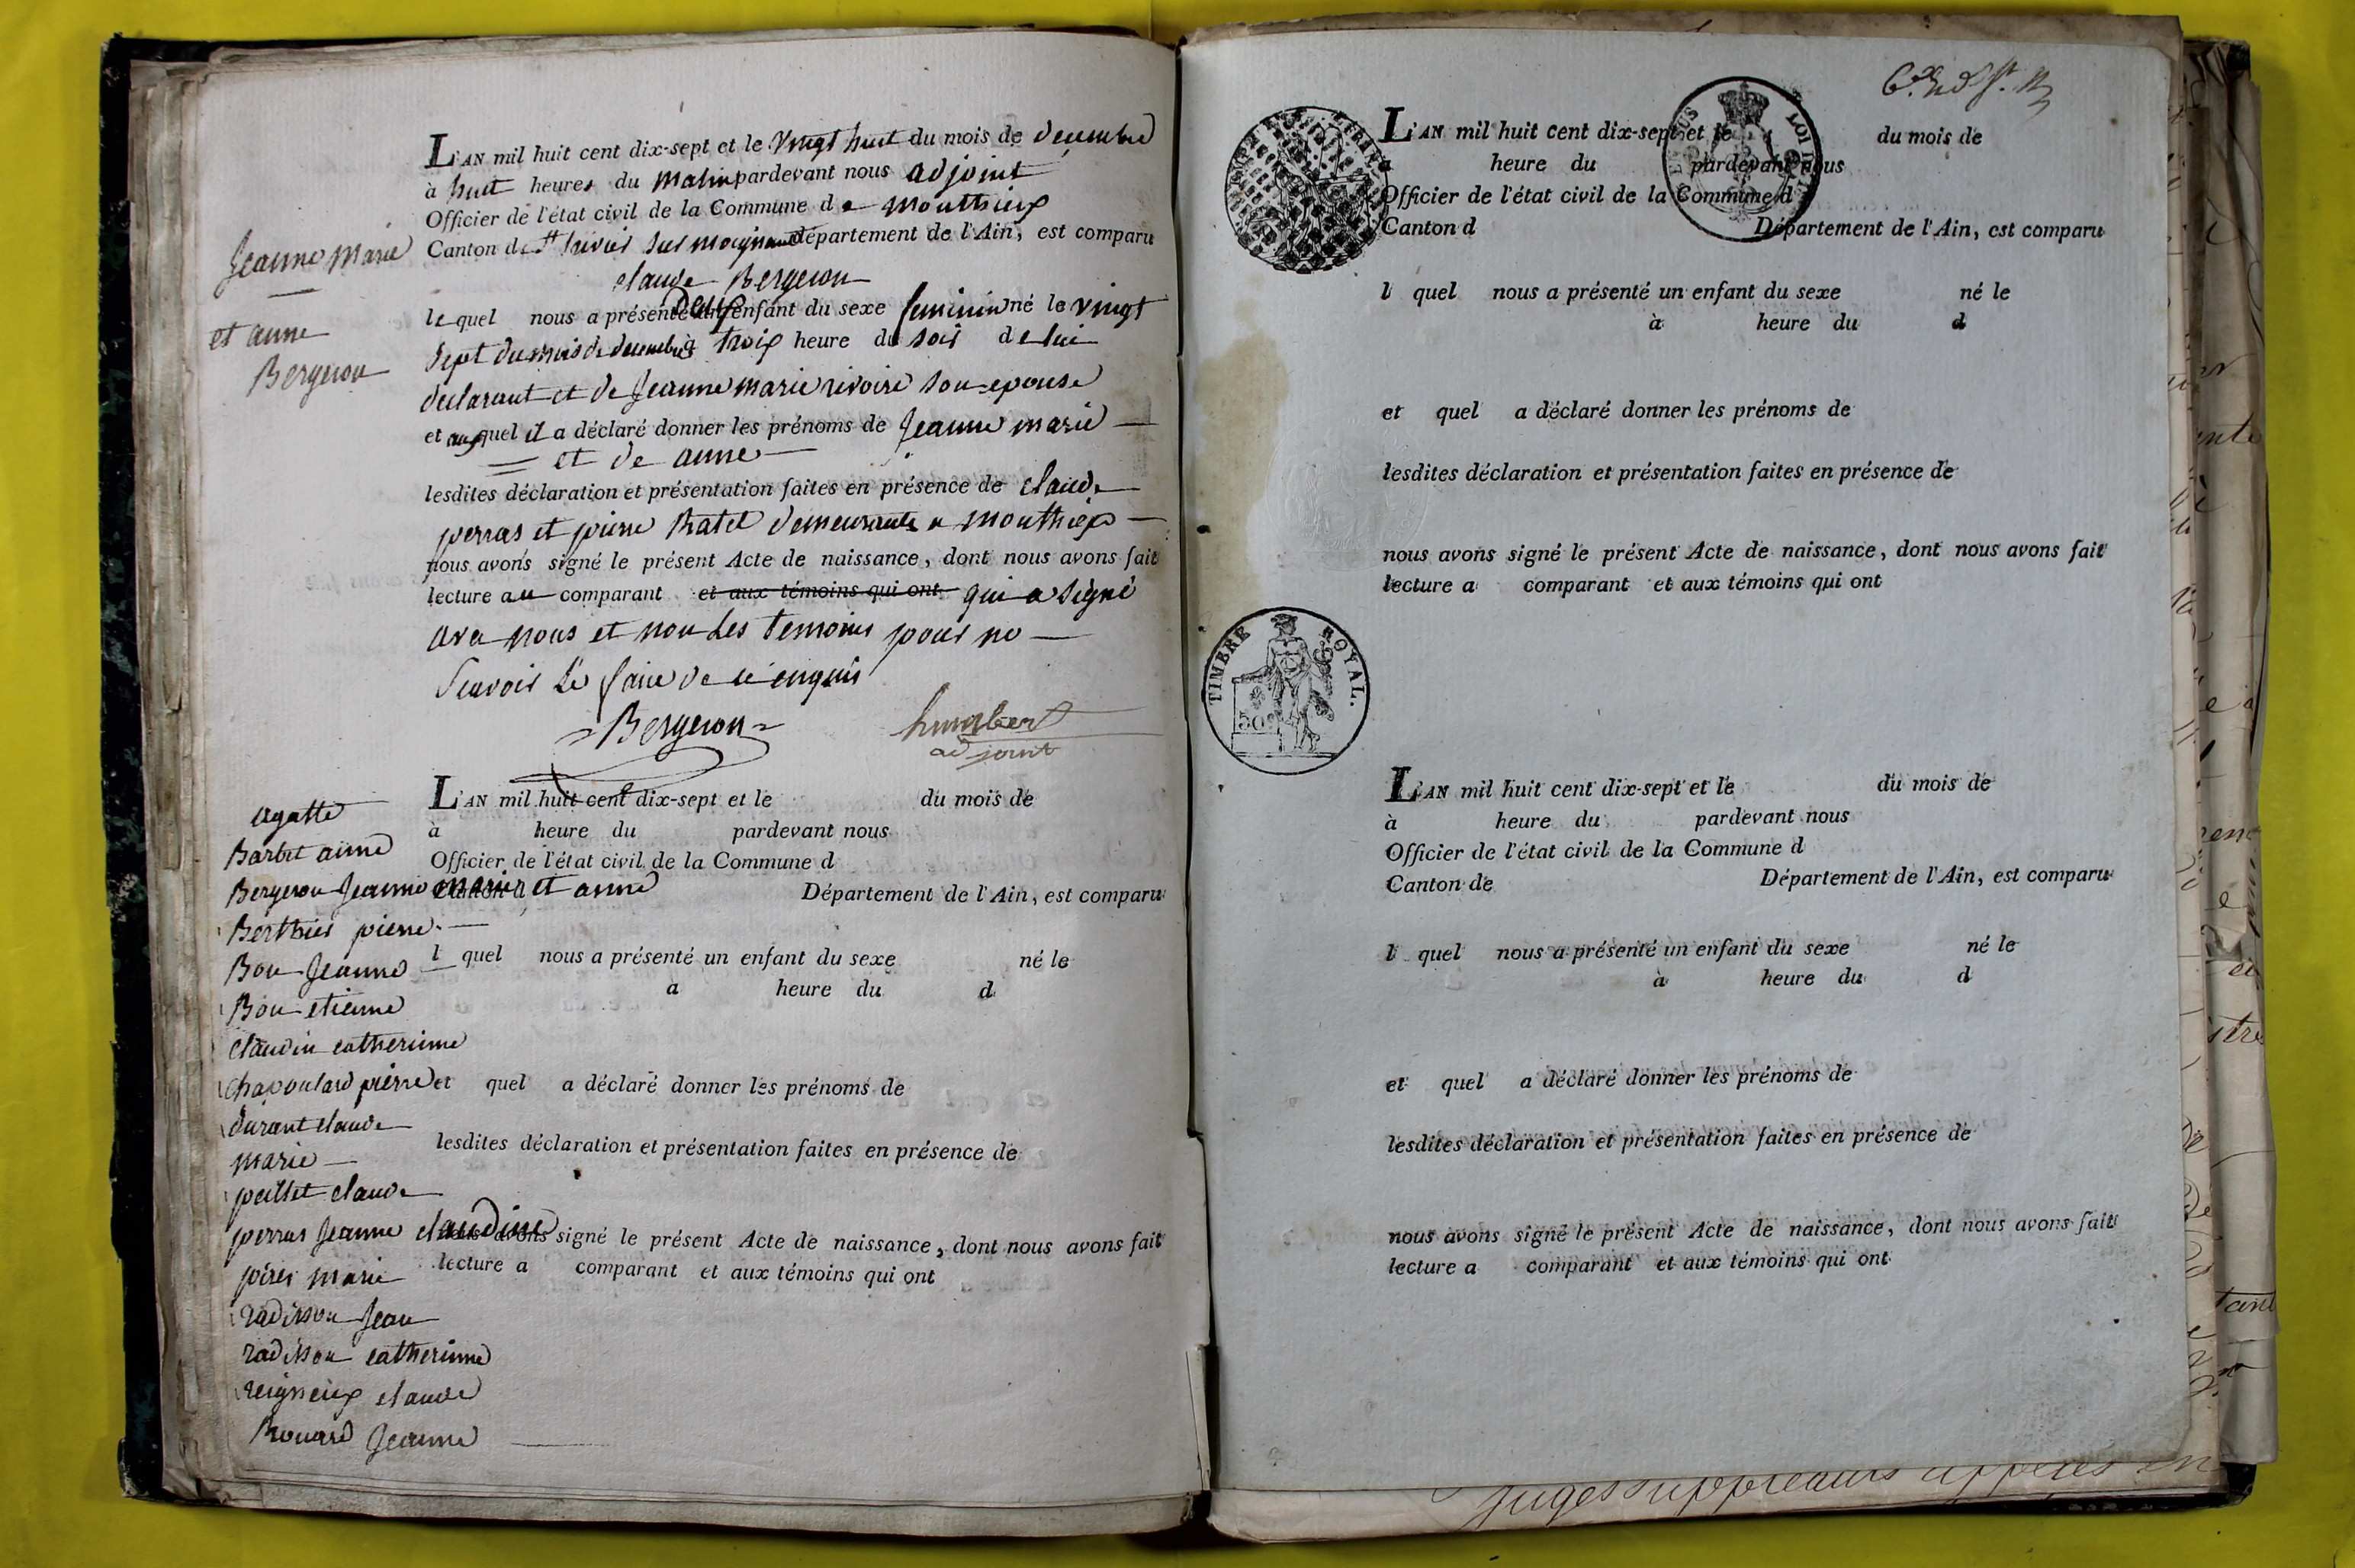 L'AN mil huit cent dix-sept et le vingt huit du mois de decembre
à huit heures du matin pardevant nous adjoint
Officier de l'état civil de la Commune de Monthieux
Canton de St trivier sur moignand Département de l'Ain, est comparu
claude Bergeron
Jeanne Marie
et anne
Bergeron
lequel nous a présenté deux enfant du sexe feminin né le vingt
sept du mois de decembre à trois heure du soir de lui
declarant et de Jeanne marie rivoire son epouse
et auxquel il a déclaré donner les prénoms de Jeanne marie
et de anne
lesdites déclaration et présentation faites en présence de claude
perras et pierre Ratel demeurants a monthieux
nous avons signé le présent Acte de naissance, dont nous avons fait
lecture au comparant et aux témoins qui ont qui a signé
avec nous et non Les temoins pour ne
scavoir Le faire de ce enquis
Bergeron humbert
adjoint
L'AN mil huit cent dix-sept et le du mois de
à heure du pardevant nous
Officier de l'état civil de la Commune d
Canton d Département de l'Ain, est comparu
l quel nous a présenté un enfant du sexe né le
a heure du d
et quel a déclaré donner les prénoms de
lesdites déclaration et présentation faites en présence de
nous avons signé le présent Acte de naissance, dont nous avons fait
lecture a comparant et aux témoins qui ont
agatte
Barbet aimé
Bergeron Jeanne marie et anne
Berthier pierre
Bon Jeanne
Bon etienne
Claudin catherinne
Chapoulard pierre
durant claude
marie
peillet claude
perras Jeanne claudine
pérer marie
radisson Jean
radisson catherinne
reigneux claude
Rouard Jeanne
L'AN mil huit cent dix-sept et le du mois de
a heure du pardevant nous
Officier de l'état civil de la Commune d
Canton d Département de l'Ain, est comparu
l quel nous a présenté un enfant du sexe né le
à heure du d
et quel a déclaré donner les prénoms de
lesdites déclaration et présentation faites en présence de
nous avons signé le présent Acte de naissance, dont nous avons fait
lecture a comparant et aux témoins qui ont
TIMBRE ROYAL.
50c
L'AN mil huit cent dix-sept et le du mois de
à heure du pardevant nous
Officier de l'état civil de la Commune d
Canton de Département de l'Ain, est comparu
l quel nous a présenté un enfant du sexe né le
à heure du d
et quel a déclaré donner les prénoms de
lesdites déclaration et présentation faites en présence de
nous avons signé le présent Acte de naissance, dont nous avons fait
lecture a comparant et aux témoins qui ont